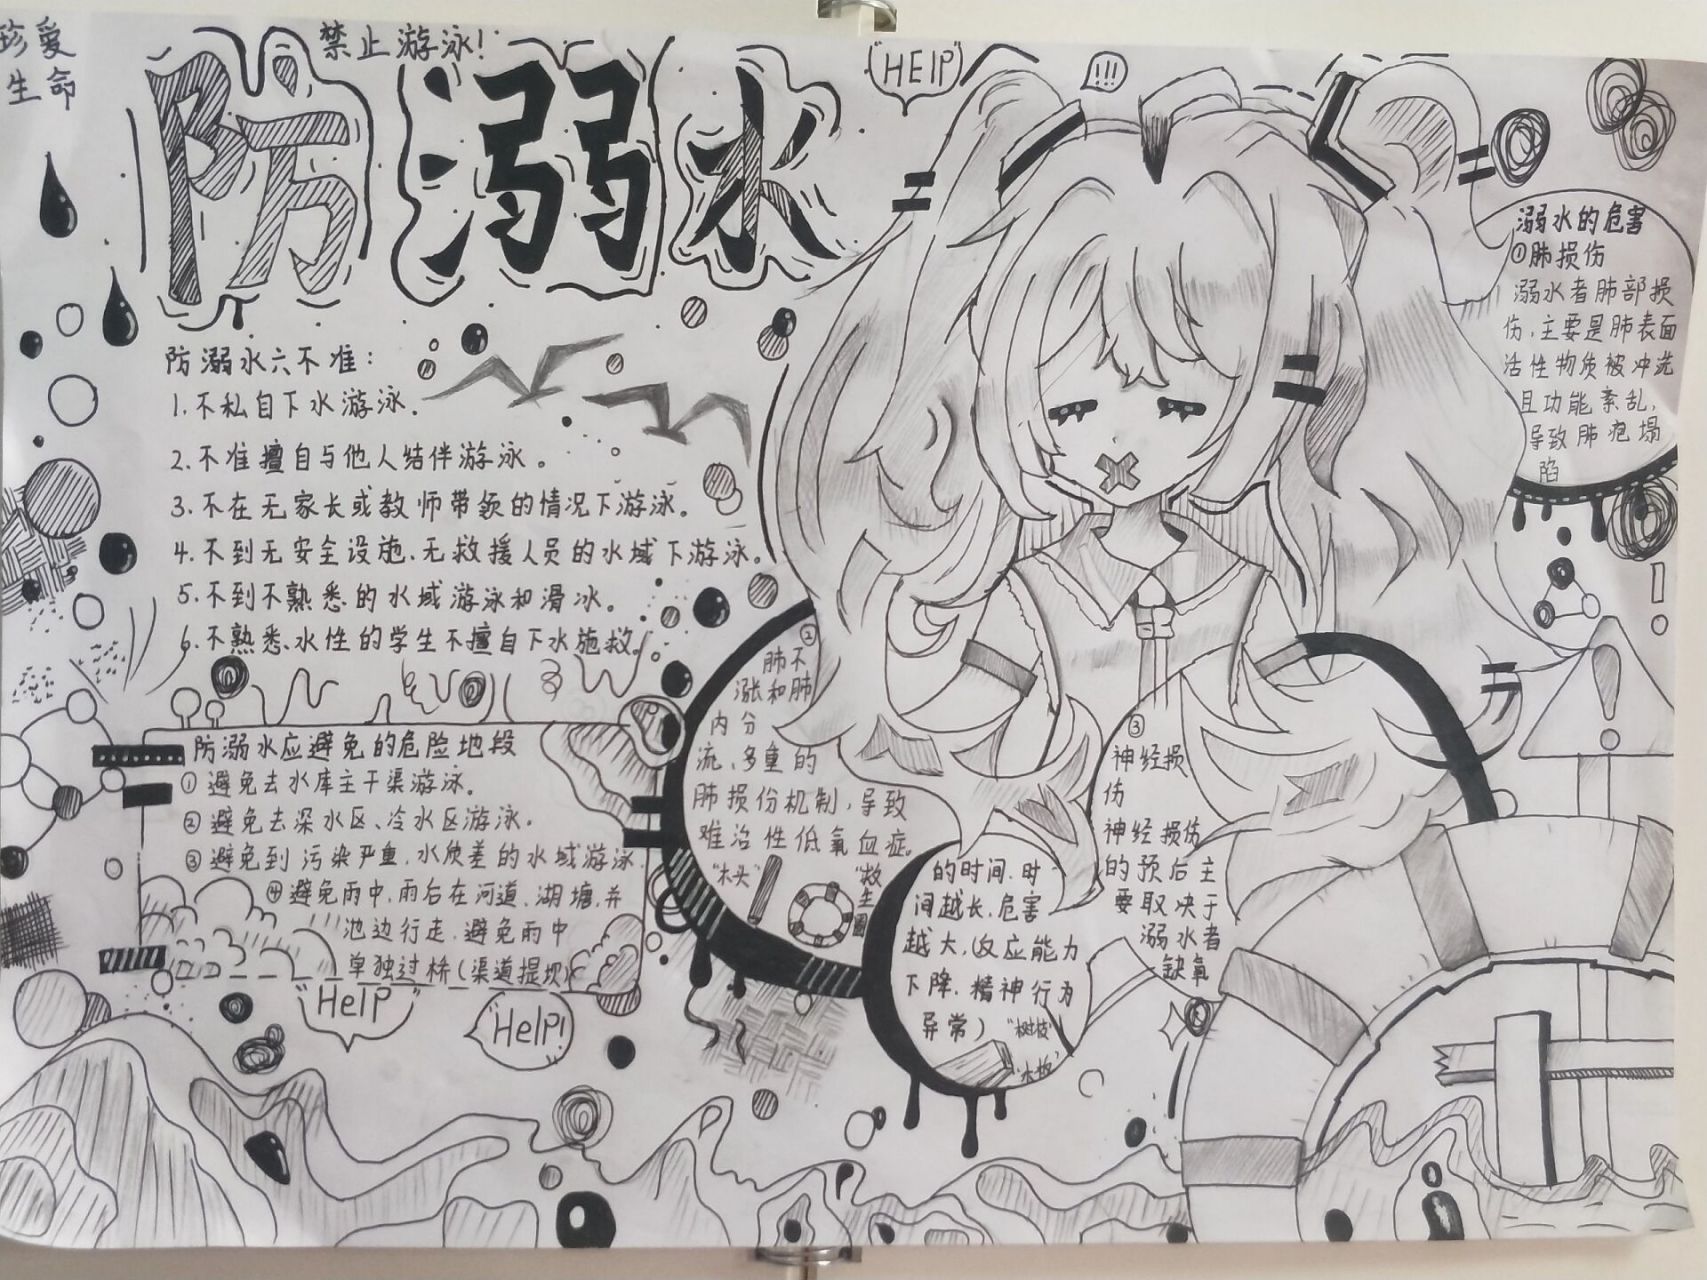 珍爱
生命
禁止游泳!
防溺水
"HElP"
!!!
防溺水六不准:
1.不私自下水游泳.
2.不准擅自与他人结伴游泳。
3.不在无家长或教师带领的情况下游泳。
4.不到无安全设施、无救援人员的水域下游泳。
5.不到不熟悉的水域游泳和滑冰。
6.不熟悉水性的学生不擅自下水施救。
防溺水应避免的危险地段
①避免去水库主干渠游泳。
②避免去深水区、冷水区游泳.
③避免到污染严重,水质差的水域游泳
④避免雨中,雨后在河道、湖塘,井
池边行走.避免雨中
单独过桥(渠道提坝)
"Help"
"Help!
溺水的危害
①肺损伤
溺水者肺部损
伤,主要是肺表面
活性物质被冲洗
且功能紊乱,
导致肺泡塌
陷
②
肺不
涨和肺
内分
流、多重的
肺损伤机制,导致
难治性低氧血症。
"木头"
"救生圈
③
神经损
伤
神经损伤
的预后主
要取决于
溺水者
缺氧
的时间.时
间越长,危害
越大,(反应能力
下降.精神行为
异常)
"树枝"
"木板"